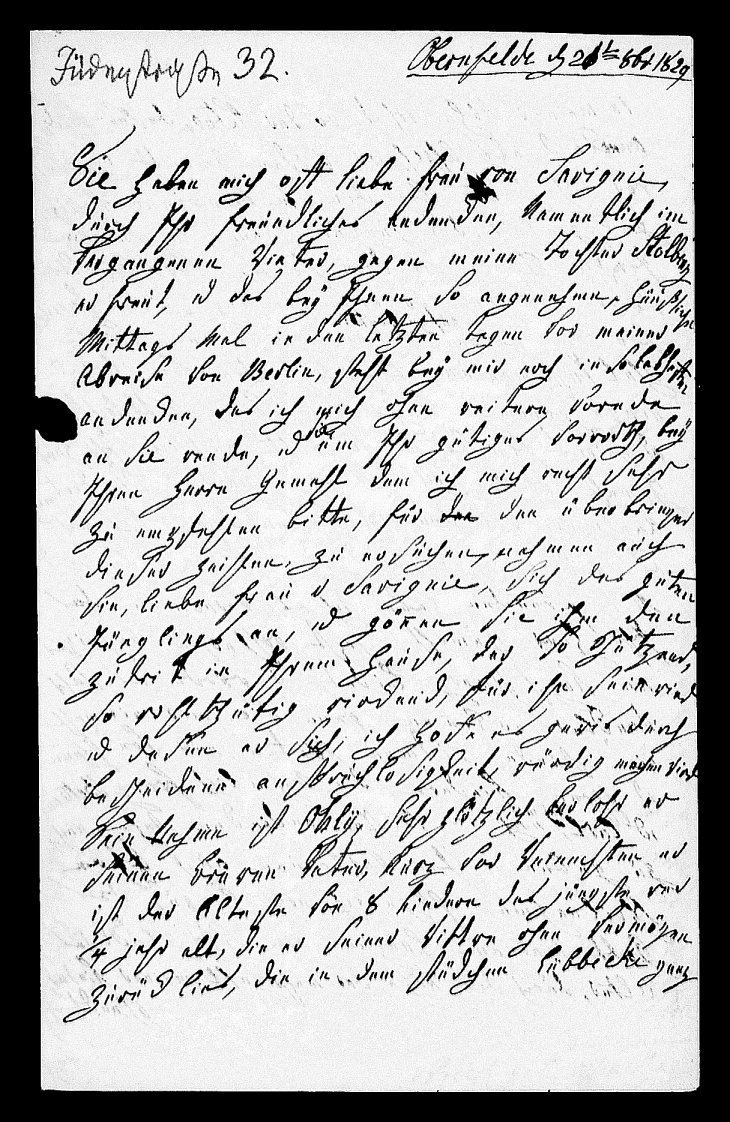 Jüdenstraße 32.
Obernfelde d 21t 8br 1829
Sie haben mich oft liebe Frau von Savignie,
durch Ihr freundliches andenken, Namentlich im
Vergangenen Winter, gegen meine Tochter Stolberg
erfreut, u das bey Ihnen so angenehme, häußliche
Mittags Mal in den letzten tagen vor meiner
Abreise von Berlin, steht bey mir noch in so lebhaften
andenken, das ich mich ohne weitere vorrede
an Sie wende, u Sie um Ihr gütiges Vorwort, bey
Ihren Herrn Gemahl dem ich mich recht sehr
zu empfehlen bitte, für den überbringer
dieser zeihlen, zu ersuchen, nehmen auch
Sie, liebe Frau v Savignie, sich des guten
Jünglings an, u gönnen Sie ihm den
zutrit in Ihrem Hause, der so schützend,
so wohlthätig wirkend, für ihn sein wird
u dessen er sich, ich hoffe es gewis durch
bescheidene anspruchlosigkeit, würdig machen wird
Sein Nahme ist Ohly, sehr plötzlich verlohr er
seinen braven Vater, kurz vor Weinachten er
ist der Älteste von 8 kindern das jüngste war
1/4 jahr alt, die er seiner Wittwe ohne Vermögen
zurück lies, die in dem städchen Lübbecke ganz